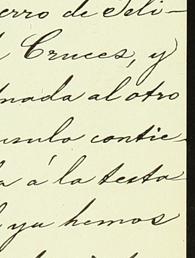 erro de Feli-
Cruces, y
nada al otro
sulo contie-
a á la testa
ya hemos